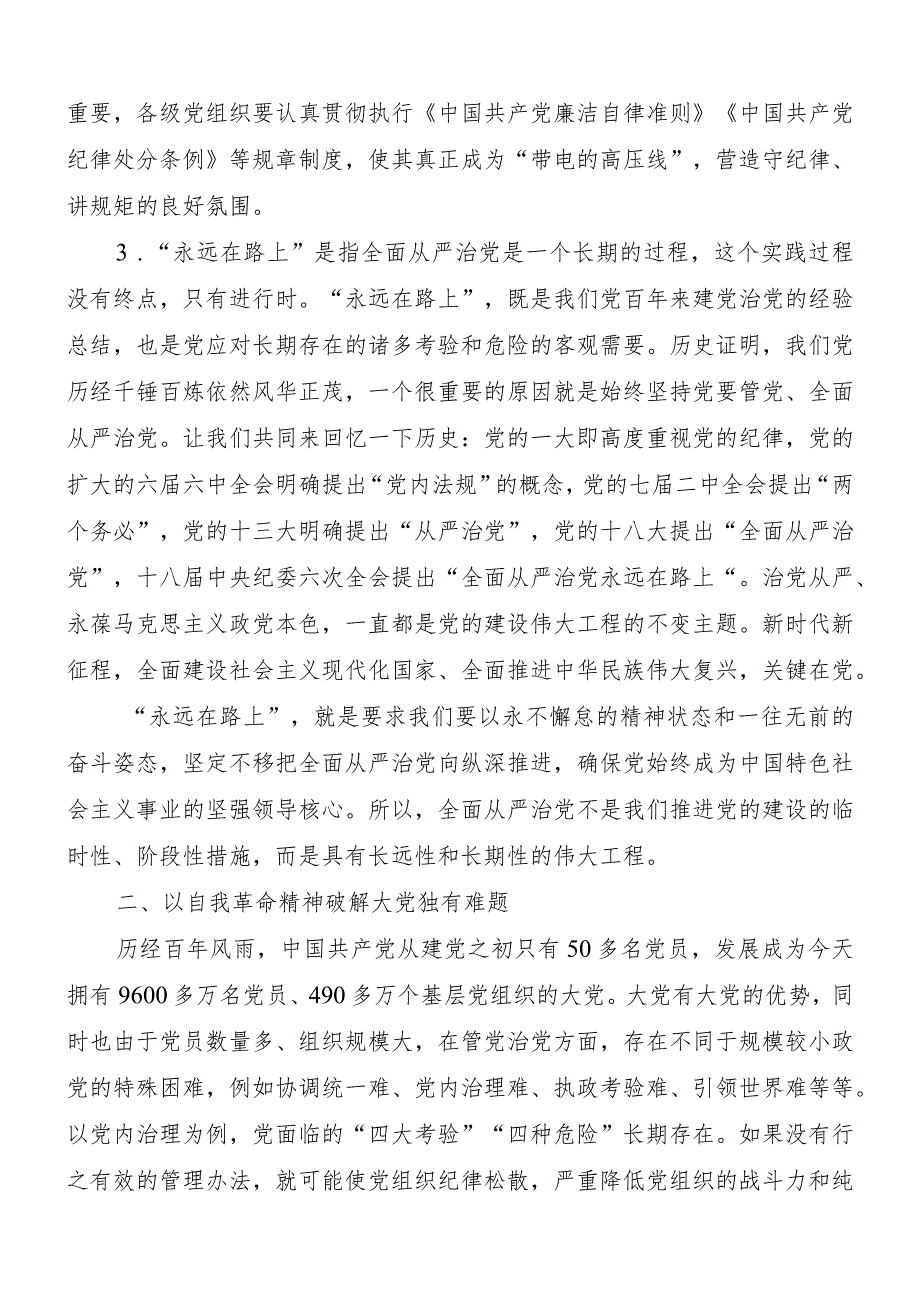 重要，各级党组织要认真贯彻执行《中国共产党廉洁自律准则》《中国共产党
纪律处分条例》等规章制度，使其真正成为“带电的高压线”，营造守纪律、
讲规矩的良好氛围。
3．“永远在路上”是指全面从严治党是一个长期的过程，这个实践过程
没有终点，只有进行时。“永远在路上”，既是我们党百年来建党治党的经验
总结，也是党应对长期存在的诸多考验和危险的客观需要。历史证明，我们党
历经千锤百炼依然风华正茂，一个很重要的原因就是始终坚持党要管党、全面
从严治党。让我们共同来回忆一下历史：党的一大即高度重视党的纪律，党的
扩大的六届六中全会明确提出“党内法规”的概念，党的七届二中全会提出“两
个务必”，党的十三大明确提出“从严治党”，党的十八大提出“全面从严治
党”，十八届中央纪委六次全会提出“全面从严治党永远在路上“。治党从严、
永葆马克思主义政党本色，一直都是党的建设伟大工程的不变主题。新时代新
征程，全面建设社会主义现代化国家、全面推进中华民族伟大复兴，关键在党。
“永远在路上”，就是要求我们要以永不懈怠的精神状态和一往无前的
奋斗姿态，坚定不移把全面从严治党向纵深推进，确保党始终成为中国特色社
会主义事业的坚强领导核心。所以，全面从严治党不是我们推进党的建设的临
时性、阶段性措施，而是具有长远性和长期性的伟大工程。
二、以自我革命精神破解大党独有难题
历经百年风雨，中国共产党从建党之初只有 50 多名党员，发展成为今天
拥有 9600 多万名党员、490 多万个基层党组织的大党。大党有大党的优势，同
时也由于党员数量多、组织规模大，在管党治党方面，存在不同于规模较小政
党的特殊困难，例如协调统一难、党内治理难、执政考验难、引领世界难等等。
以党内治理为例，党面临的“四大考验”“四种危险”长期存在。如果没有行
之有效的管理办法，就可能使党组织纪律松散，严重降低党组织的战斗力和纯